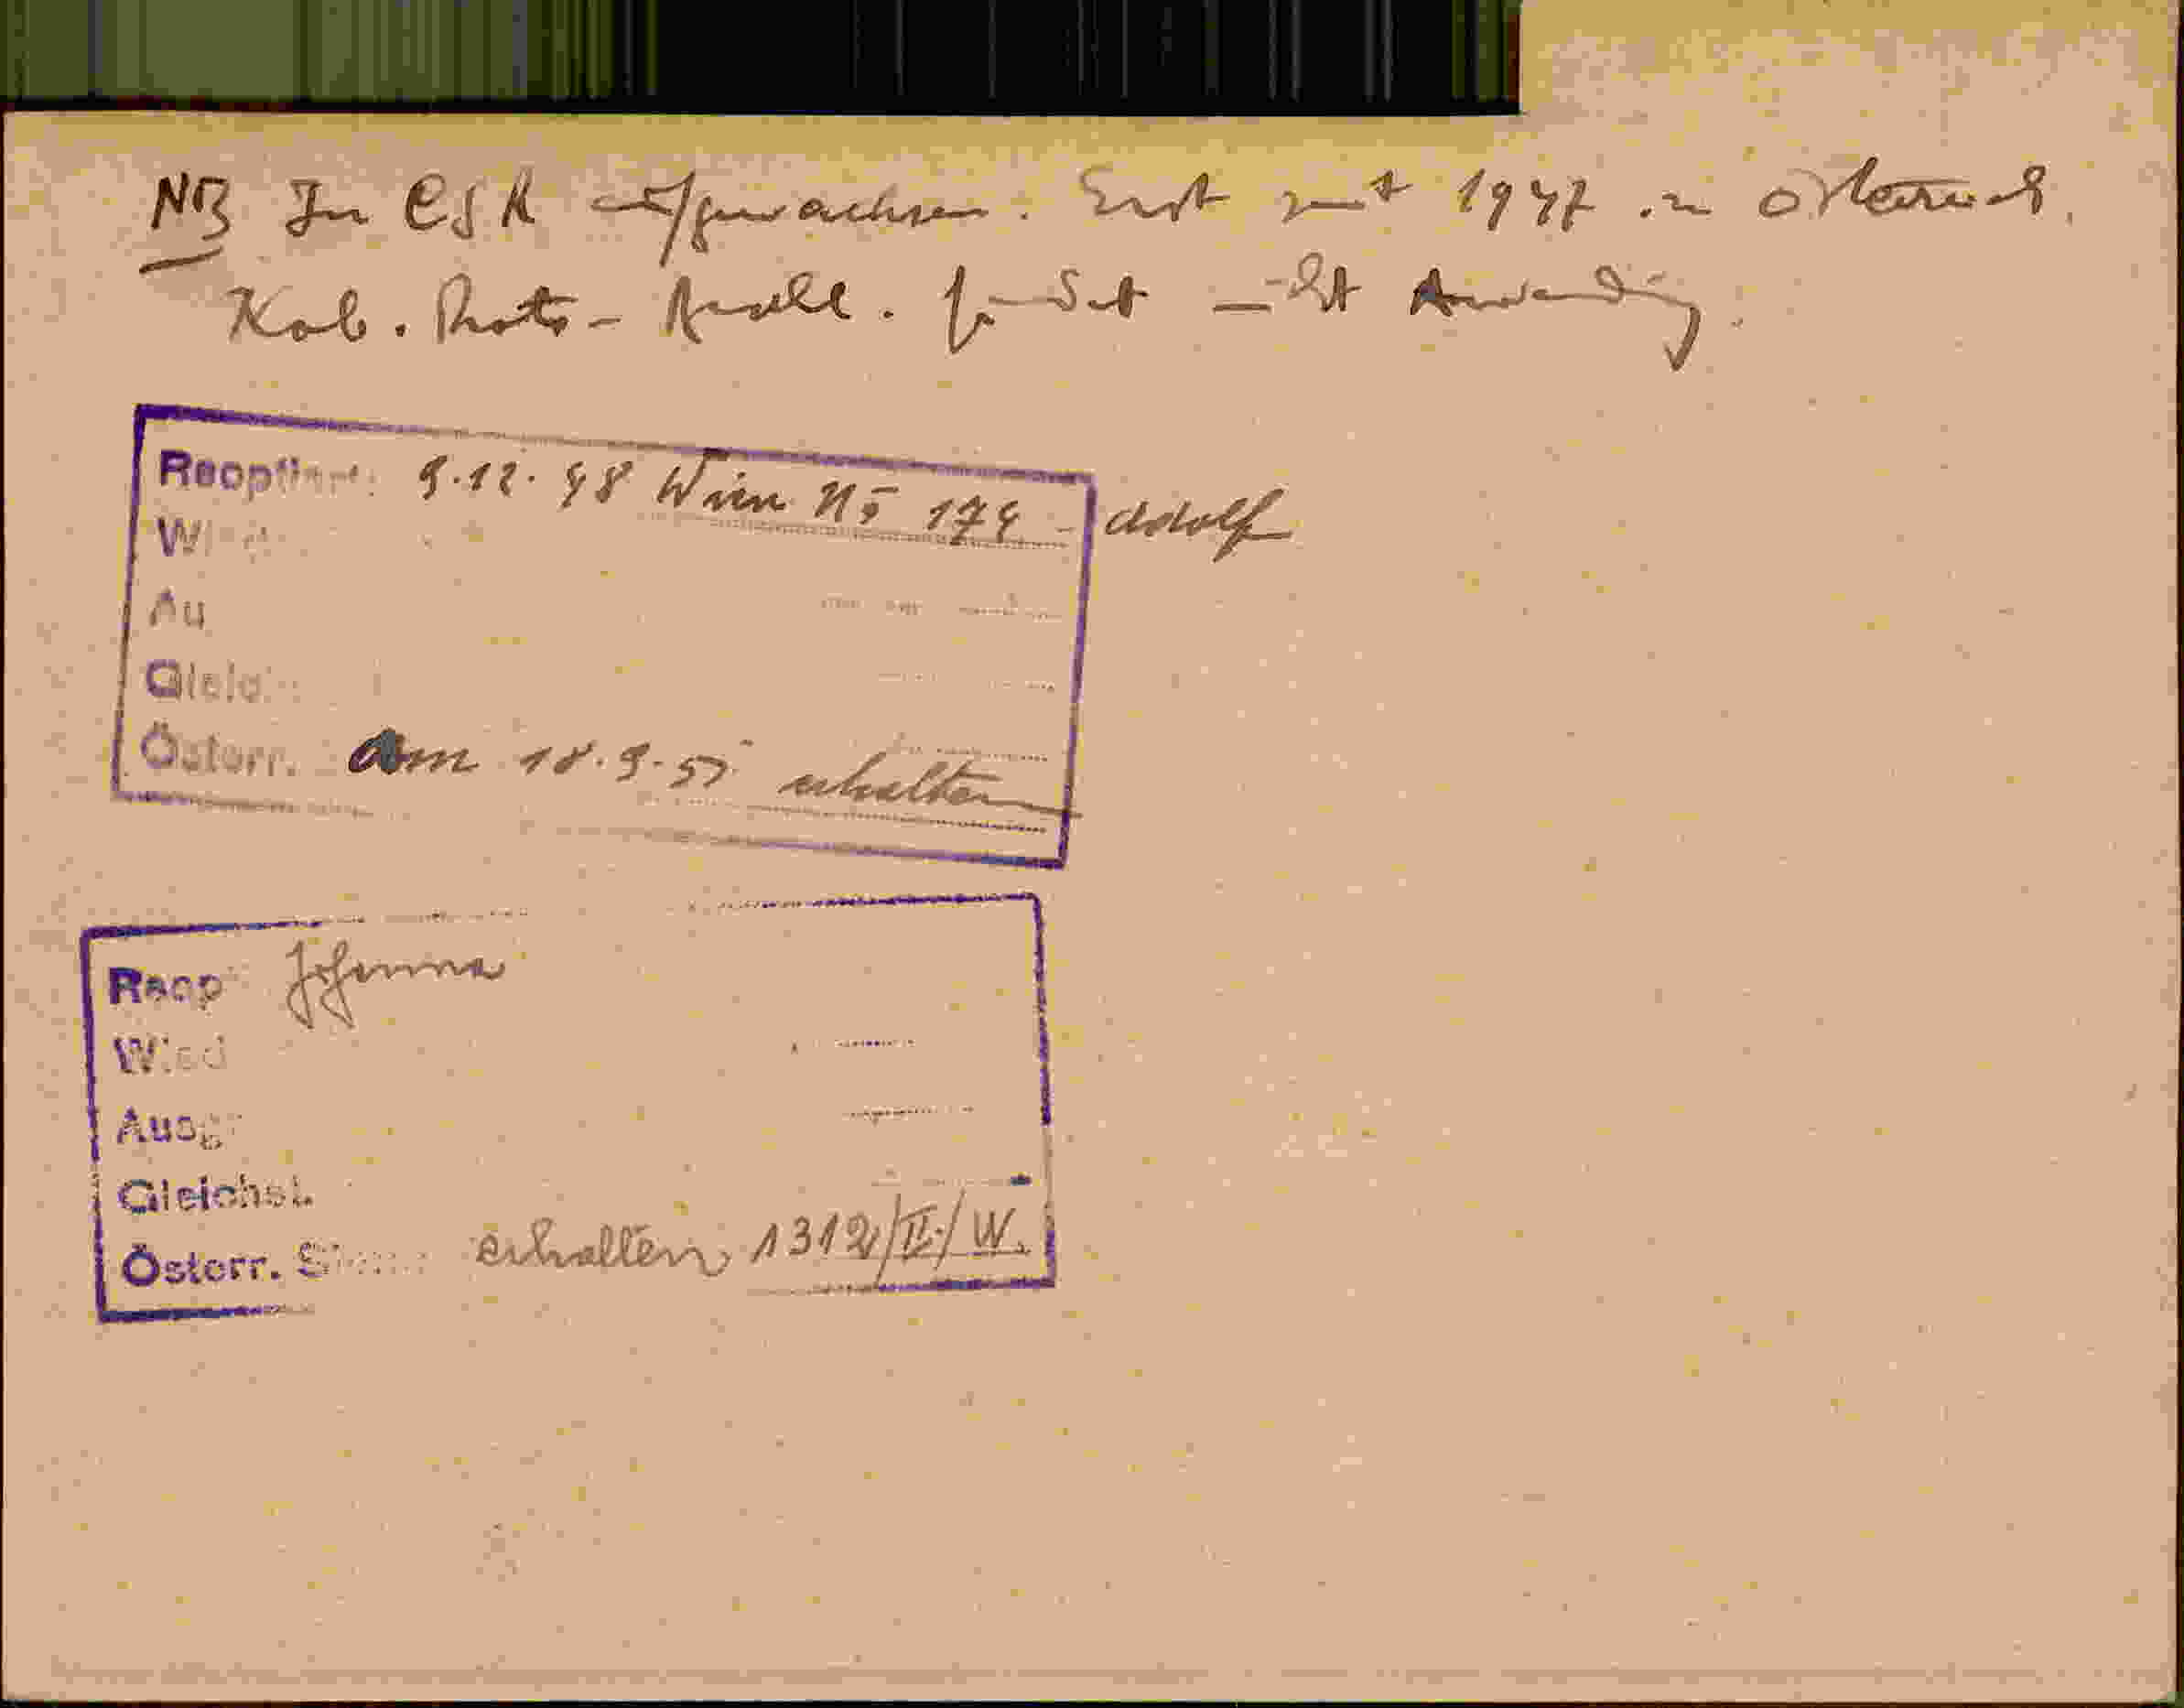 NB In CSR aufgewachsen. Erst seit 1947 in Österreich.
Kab. Rats- findet nicht Anwendung.
Reoptiert: 9.12.48 Wien Nö 174 - Adolf
Wied
Au
Gleich
Österr. am 18.9.51 erhalten
Reopt Johanna
Wied
Ausg
Gleichst.
Österr. Staat erhalten 1312/II/W.